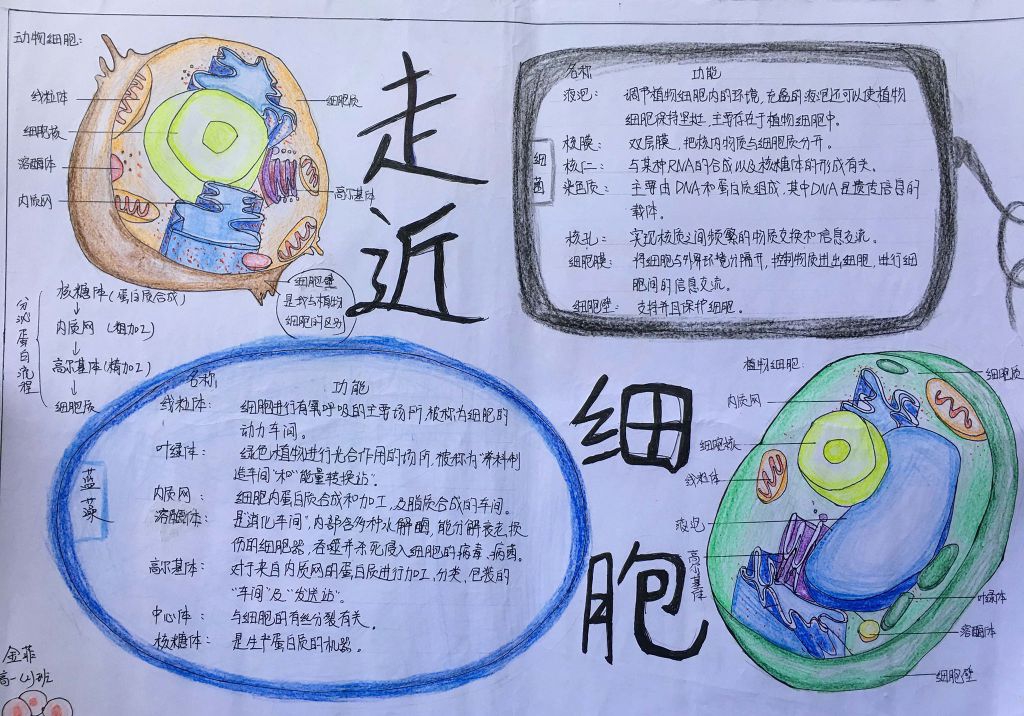 动物细胞:
线粒体
细胞核
溶酶体
内质网
细胞质
高尔基体
细胞壁
是我与植物
细胞的区分
分泌蛋白流程
核糖体(蛋白质合成)
↓
内质网 (粗加工)
↓
高尔基体(精加工)
↓
细胞质
走近
细胞
细菌
名称 功能
液泡: 调节植物细胞内的环境,充盈的液泡还可以使植物
细胞保持坚挺,主要存在于植物细胞中。
核膜: 双层膜,把核内物质与细胞质分开。
核仁: 与某种RNA的合成以及核糖体的形成有关。
染色质: 主要由DNA和蛋白质组成,其中DNA是遗传信息的
载体。
核孔: 实现核质之间频繁的物质交换和信息交流。
细胞膜: 将细胞与外界环境分隔开,控制物质进出细胞,进行细
胞间的信息交流。
细胞壁: 支持并且保护细胞。
蓝藻
名称 功能
线粒体: 细胞进行有氧呼吸的主要场所,被称为细胞的
动力车间。
叶绿体: 绿色植物进行光合作用的场所,被称为“养料制
造车间”和“能量转换站”。
内质网: 细胞内蛋白质合成和加工,及脂质合成的车间。
溶酶体: 是“消化车间”,内部含多种水解酶,能分解衰老损
伤的细胞器,吞噬并杀死侵入细胞的病毒、病菌。
高尔基体: 对于来自内质网的蛋白质进行加工,分类,包装的
“车间”及“发送站”。
中心体: 与细胞的有丝分裂有关。
核糖体: 是生产蛋白质的机器。
植物细胞:
内质网
细胞核
线粒体
液泡
高尔基体
细胞质
叶绿体
溶酶体
细胞壁
金菲
高一(2)班